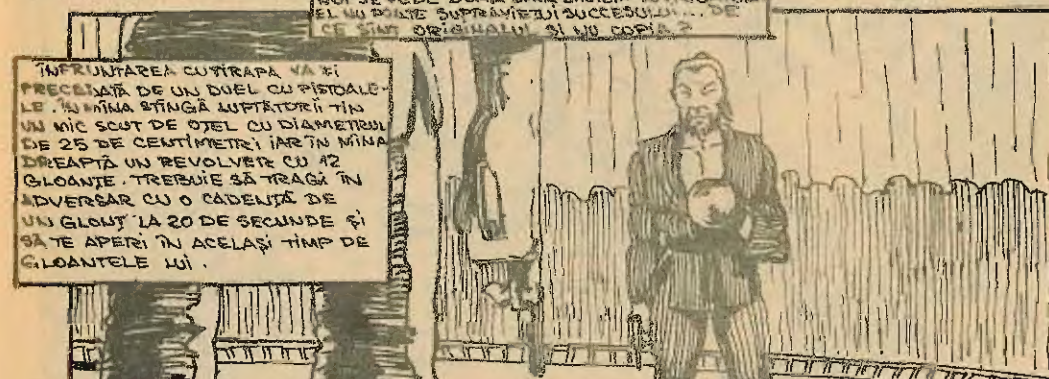 EL NU POATE SUPRAVIEȚUI SUCCESULUI... DE
CE SÎNT ORIGINALUL ȘI NU COPIA?
ÎNFRUNTAREA CU TIRAPA VA FI
PRECEDATĂ DE UN DUEL CU PISTOALE-
LE. ÎN MÎNA STÎNGĂ LUPTĂTORII ȚIN
UN MIC SCUT DE OȚEL CU DIAMETRUL
DE 25 DE CENTIMETRI IAR ÎN MÎNA
DREAPTĂ UN REVOLVER CU 12
GLOANȚE. TREBUIE SĂ TRAGI ÎN
ADVERSAR CU O CADENȚĂ DE
UN GLONȚ LA 20 DE SECUNDE ȘI
SĂ TE APERI ÎN ACELAȘI TIMP DE
GLOANȚELE LUI.